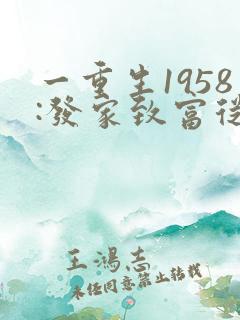 一重生1958
:發家致富從
王鴻志
未经同意禁止转载